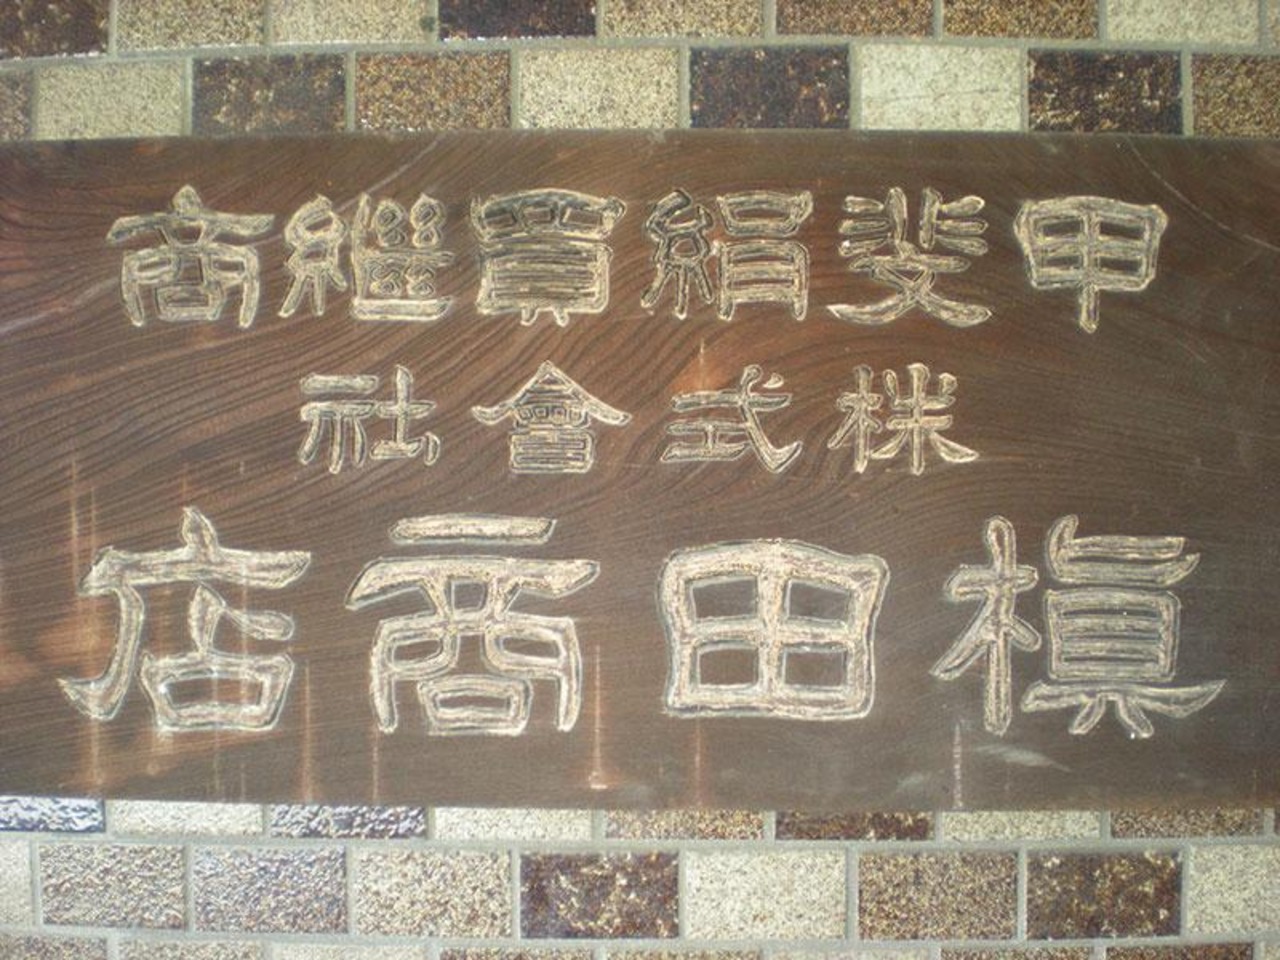 甲斐絹買繼商
株式會社
槇田商店